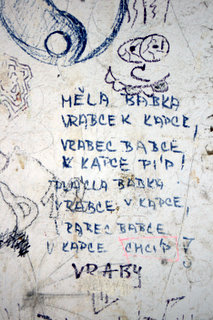 MĚLA BABKA
VRABCE K KAPCE,
VRABEC BABCE
K KAPCE PÍP!
BABKA
VRABCE V KAPCE,
BABCE
V KAPCE CHCÍP!
VRABY